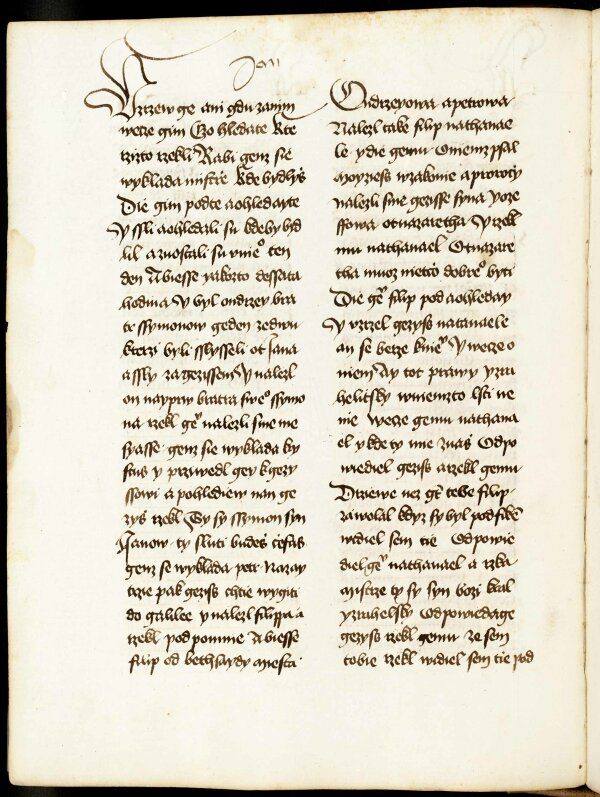 Jan
Vzrzew ge ani gdu zanim
wece gim Czo hledate Kte
rzizto rzekli Rabi genz sie
wyklada mistrze Kde bydlyss
Die gim podte aohledayte
Y ssli aohledali su kdeby byd
lil azuostali su vnieº ten
den Abiesse yakozto dessata
hodina Y byl ondrzey bra
tr ssymonow geden zedwu
kterzi byli slysseli ot Jana
assly zagezissem Y nalezl
on nayprw bratra sweº ssymo
na rzekl geº nalezli sme me
syasse genz sie wyklada kry
stus y przwedl gey kgezy
ssowi a pohlediew nan ge
zyss rzekl Ty sy ssymon syn
Janow ty sluti budess cefas
genz se wyklada petr Nazay
trzie pak geziss chtie wygiti
do galilee y nalezl filippa a
rzekl pod pomnie A biesse
filip od bethsaydy miesta
Ondrzeyowa apetrowa
Nalezl take filip nathanae
le ydie gemu Oniemz psal
moyziess wzakonie aprorocy
nalezli sme gezisse syna yoze
ffowa otnazaretha Y rzekl
mu nathanael Otnazare
tha muoz nieco dobreº byti
Die geº filip pod aohleday
Y vzrzel gezyss natanaele
an se berze knieº Y wece o
niem Ay tot prawy yzra
helitsky wniemzto lsti ne
nie Wece gemu nathana
el y kde ty mne znass Odpo
wiediel geziss arzekl gemu
Drziewe nez gt tebe filip
zawolal kdyz sy byl podfikem
widiel sem tie Odpowie
diel geº nathanael a rzka
mistrze ty sy syn bozi kral
yzrahelsky Odpowiedage
gezyss rzekl gemu ze sem
tobie rzekl widiel sem tie pod